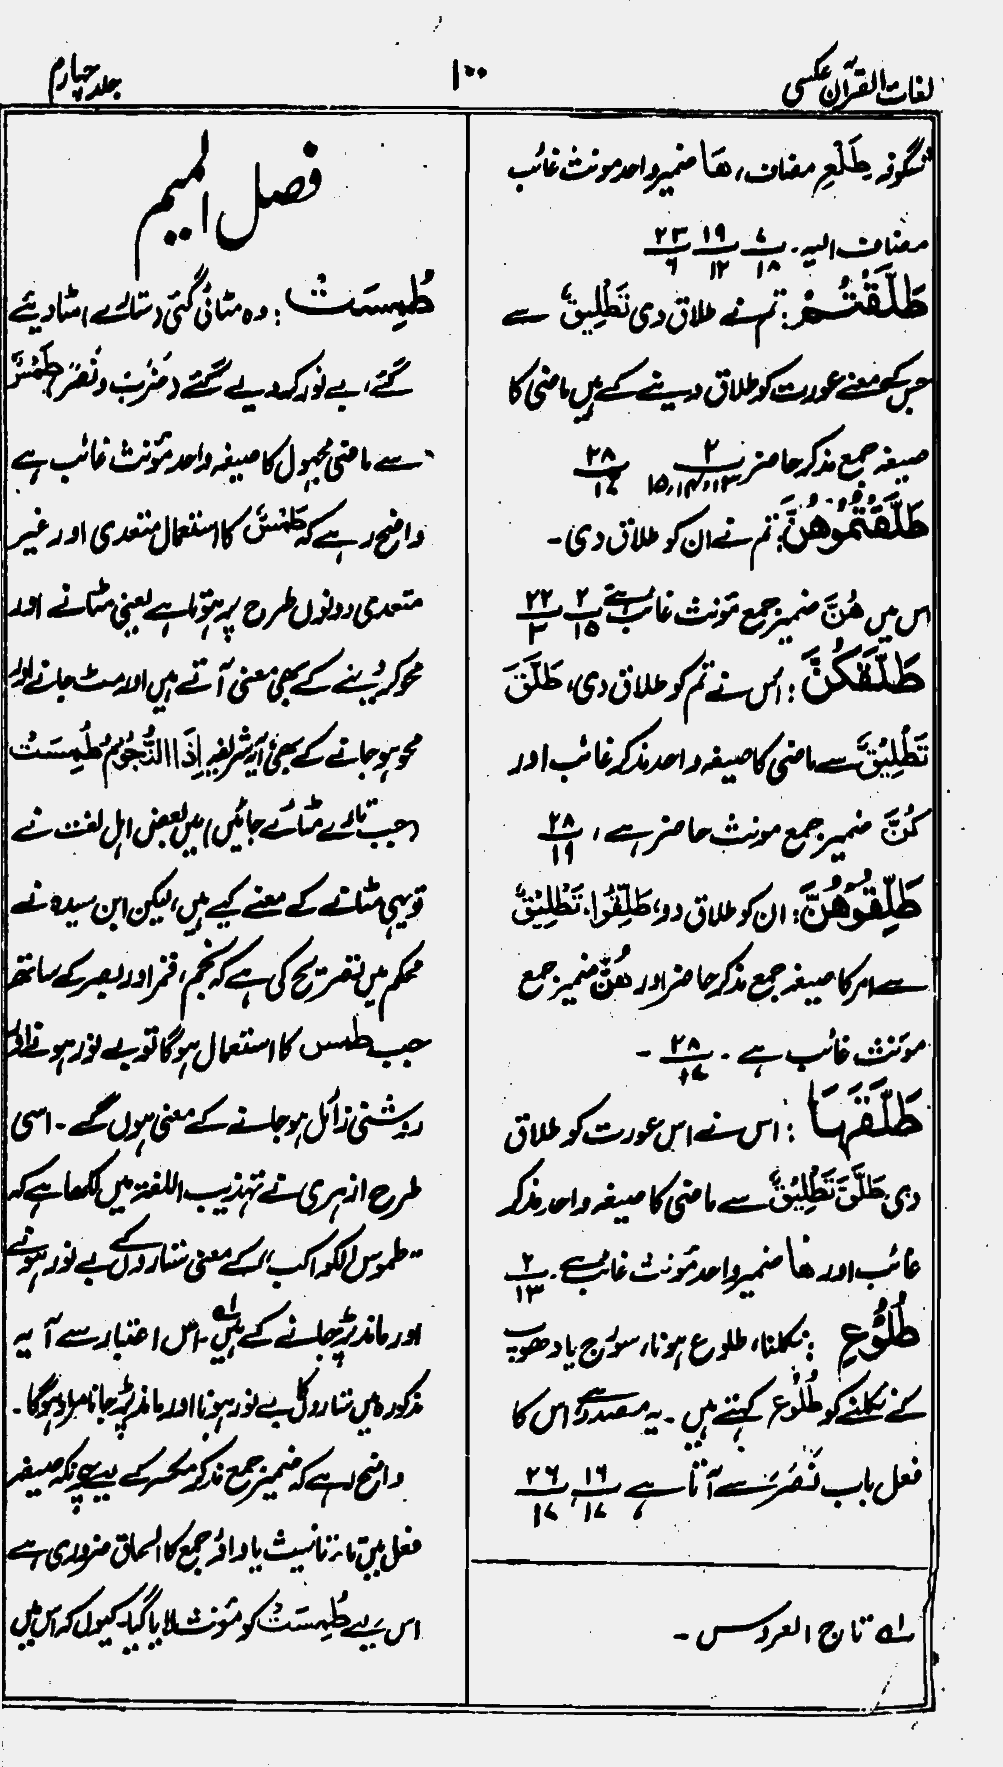 لغات القرآن عکسی
۱۰۰
جلد چہارم
شگوفہ طَلْعِ مضاف، ھَا ضمیر واحد مونث غائب
مضاف الیہ۔ ۷/۱۸ ۱۹/۱۲ ۲۳/۶
طَلَّقْتُمْ: تم نے طلاق دی تَطْلِیْقٌ سے
جس کے معنے عورت کو طلاق دینے کے ہیں ماضی کا
صیغہ جمع مذکر حاضر ۲/۱۳،۱۴،۱۵ ۲۸/۱۷
طَلَّقْتُمُوْهُنَّ: تم نے ان کو طلاق دی۔
اس میں هُنَّ ضمیر جمع مؤنث غائب ہے ۲/۱۵ ۲۲/۳
طَلَّقَكُنَّ: اس نے تم کو طلاق دی، طَلَّقَ
تَطْلِیْقٌ سے ماضی کا صیغہ واحد مذکر غائب اور
كُنَّ ضمیر جمع مونث حاضر ہے، ۲۸/۱۹
طَلِّقُوْهُنَّ: ان کو طلاق دو، طَلِّقُوْا، تَطْلِیْقٌ
سے امر کا صیغہ جمع مذکر حاضر اور هُنَّ ضمیر جمع
مؤنث غائب ہے۔ ۲۸/۱۷ ۔
طَلَّقَهَا: اس نے اس عورت کو طلاق
دی طَلَّقَ تَطْلِیْقٌ سے ماضی کا صیغہ واحد مذکر
غائب اور ھَا ضمیر واحد مؤنث غائب ہے۔ ۲/۱۳
طُلُوْعِ: نکلنا، طلوع ہونا، سورج یا دھوپ
کے نکلنے کو طُلُوْع کہتے ہیں۔ یہ مصدر ہے اس کا
فعل باب نَصَرَ سے آتا ہے، ۱۶/۱۷، ۲۶/۱۷
لہ تاج العروس۔
فصل المیم
طُمِسَتْ: وہ مٹائی گئی (ستارے) مٹا دیئے
گئے، بے نور کر دیے گئے (ضَرَبَ و نَصَرَ) طَمْسٌ
سے ماضی مجہول کا صیغہ واحد مؤنث غائب ہے
واضح رہے کہ طَمْسٌ کا استعمال متعدی اور غیر
متعدی دونوں طرح پر ہوتا ہے یعنی مٹانے اور
محو کر دینے کے بھی معنی آتے ہیں اور مٹ جانے اور
محو ہو جانے کے بھی، آیہ شریفہ اِذَا النُّجُوْمُ طُمِسَتْ
(جب تارے مٹائے جائیں) میں بعض اہل لغت نے
تو یہی مٹانے کے معنے کیے ہیں، لیکن ابن سیدہ نے
محکم میں تصریح کی ہے کہ نجم، قمر اور بصر کے ساتھ
جب طمس کا استعمال ہوگا تو بے نور ہونے اور
روشنی زائل ہو جانے کے معنی ہوں گے۔ اسی
طرح ازہری نے تہذیب اللغۃ میں لکھا ہے کہ
"طموس الکواکب" کے معنی ستاروں کے بے نور ہونے
اور ماند پڑ جانے کے ہیں لہ۔ اس اعتبار سے آیہ
مذکورہ میں ستاروں کا بے نور ہونا اور ماند پڑ جانا مراد ہوگا۔
واضح رہے کہ ضمیر جمع مذکر مکسر کے لیے چونکہ صیغہ
فعل میں تاء تانیث یا واؤ جمع کا الحاق ضروری ہے
اس لیے طُمِسَتْ کو مؤنث لایا گیا۔ کیوں کہ اس میں